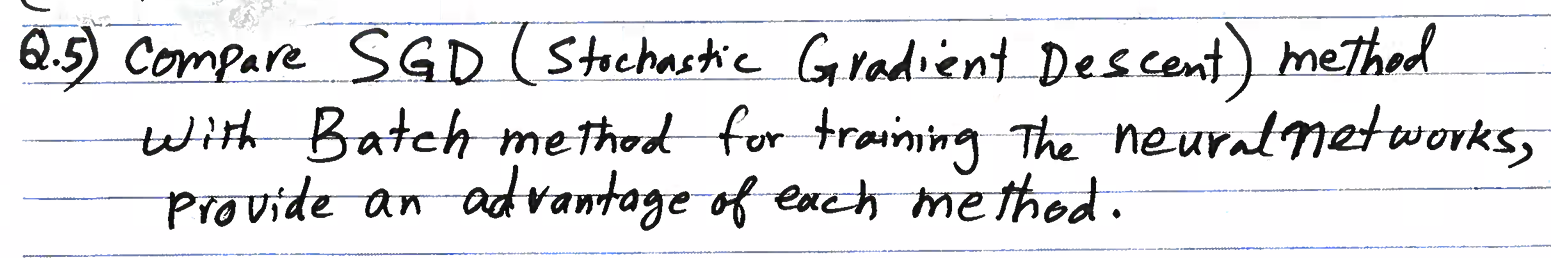 Q.5) Compare SGD (Stochastic Gradient Descent) method
with Batch method for training The neural networks,
provide an advantage of each method.